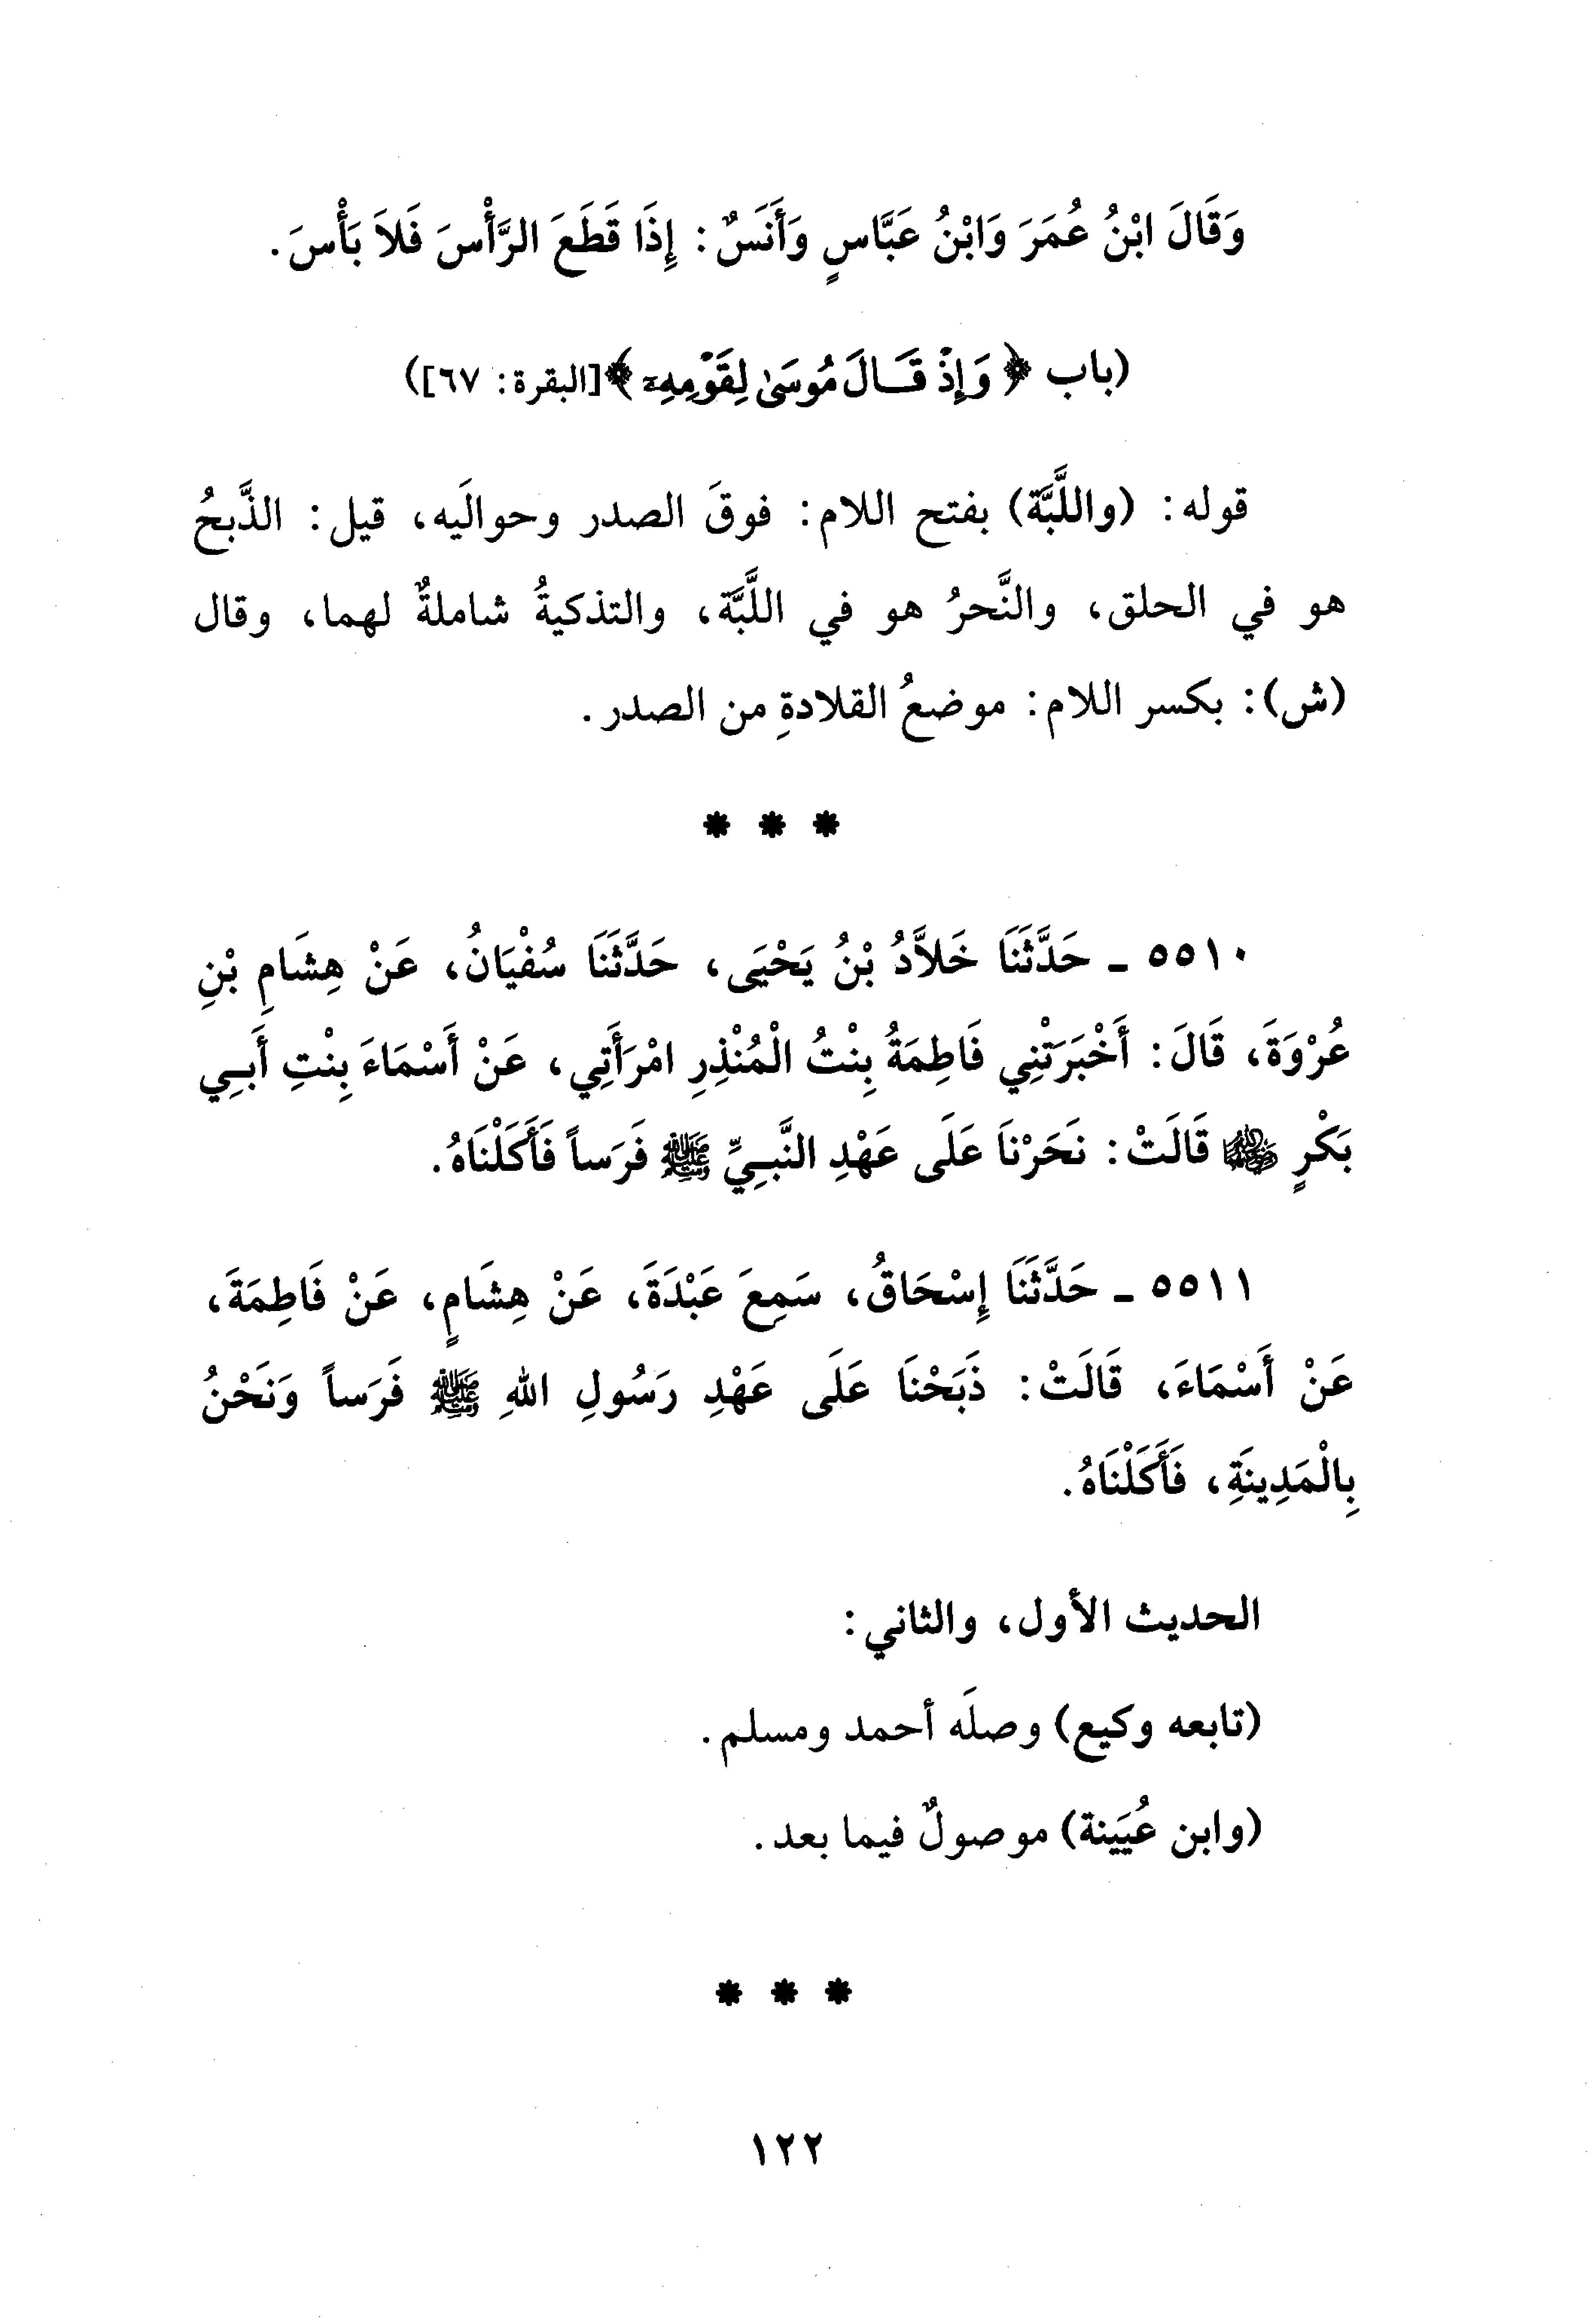 وَقَالَ ابْنُ عُمَرَ وَابْنُ عَبَّاسٍ وَأَنَسٌ: إِذَا قَطَعَ الرَّأْسَ فَلاَ بَأْسَ.
(باب ﴿وَإِذْ قَالَ مُوسَىٰ لِقَوْمِهِۦ﴾[البقرة: ٦٧])
قوله: (واللَّبَّة) بفتح اللام: فوقَ الصدر وحوالَيه، قيل: الذَّبحُ
هو في الحلق، والنَّحرُ هو في اللَّبَّة، والتذكيةُ شاملةٌ لهما، وقال
(ش): بكسر اللام: موضعُ القلادةِ من الصدر.
* * *
٥٥١٠ ـ حَدَّثَنَا خَلاَّدُ بْنُ يَحْيَى، حَدَّثَنَا سُفْيَانُ، عَنْ هِشَامِ بْنِ
عُرْوَةَ، قَالَ: أَخْبَرَتْنِي فَاطِمَةُ بِنْتُ الْمُنْذِرِ امْرَأَتِي، عَنْ أَسْمَاءَ بِنْتِ أَبِي
بَكْرٍ ﵂ قَالَتْ: نَحَرْنَا عَلَى عَهْدِ النَّبِيِّ ﷺ فَرَساً فَأَكَلْنَاهُ.
٥٥١١ ـ حَدَّثَنَا إِسْحَاقُ، سَمِعَ عَبْدَةَ، عَنْ هِشَامٍ، عَنْ فَاطِمَةَ،
عَنْ أَسْمَاءَ، قَالَتْ: ذَبَحْنَا عَلَى عَهْدِ رَسُولِ اللهِ ﷺ فَرَساً وَنَحْنُ
بِالْمَدِينَةِ، فَأَكَلْنَاهُ.
الحديث الأول، والثاني:
(تابعه وكيع) وصلَه أحمد ومسلم.
(وابن عُيَينة) موصولٌ فيما بعد.
* * *
١٢٢